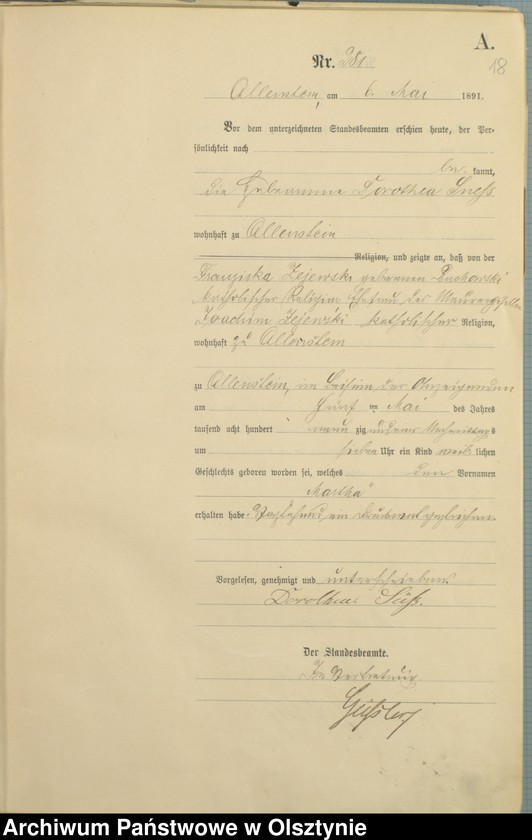 A.
18
Nr.
Allenstein, am 6. Mai 1891.
Vor dem unterzeichneten Standesbeamten erschien heute, der Per-
sönlichkeit nach
be kannt,
die Hebamme Dorothea Süß
wohnhaft zu Allenstein
Religion, und zeigte an, daß von der
Franziska Zejewski geborenen
katholischer Religion Ehefrau des Maurergesellen
Joachim Zejewski katholischer Religion,
wohnhaft zu Allenstein
zu Allenstein, im Beisein der Anzeigenden
am fünf ten Mai des Jahres
tausend acht hundert neun zig und eins Nachmittags
um sieben Uhr ein Kind weib lichen
Geschlechts geboren worden sei, welches den Vornamen
Martha
erhalten habe. Vorstehend ein Druckwort gestrichen.
Vorgelesen, genehmigt und unterschrieben
Dorothea Süß.
Der Standesbeamte.
In Vertretung
Archiwum Państwowe w Olsztynie